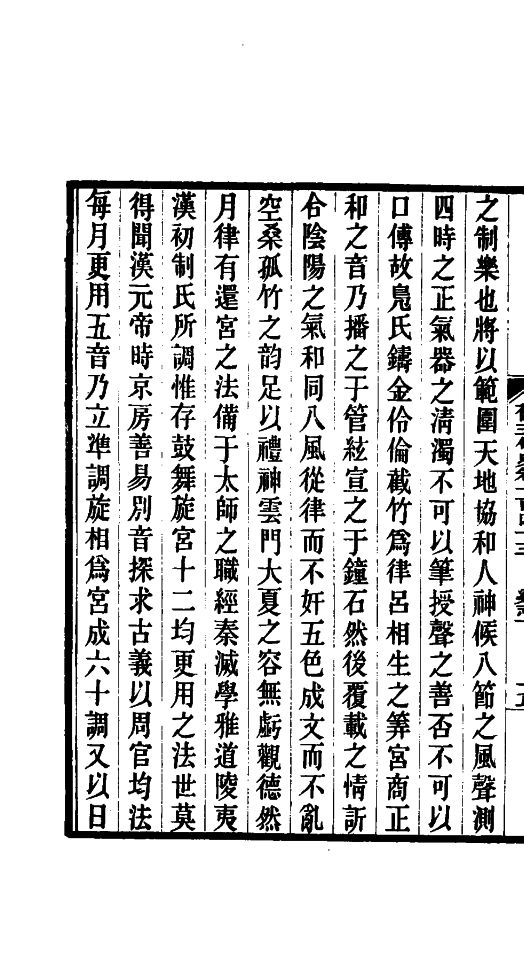 之制樂也將以範圍天地協和人神候八節之風聲測
四時之正氣器之清濁不可以筆授聲之善否不可以
口傳故鳧氏鑄金伶倫截竹爲律呂相生之筭宮商正
和之音乃播之于管絃宣之于鐘石然後覆載之情訢
合陰陽之氣和同八風從律而不奸五色成文而不亂
空桑孤竹之韵足以禮神雲門大夏之容無虧觀德然
月律有還宮之法備于太師之職經秦滅學雅道陵夷
漢初制氏所調惟存鼓舞旋宮十二均更用之法世莫
得聞漢元帝時京房善易別音探求古義以周官均法
每月更用五音乃立準調旋相爲宮成六十調又以日